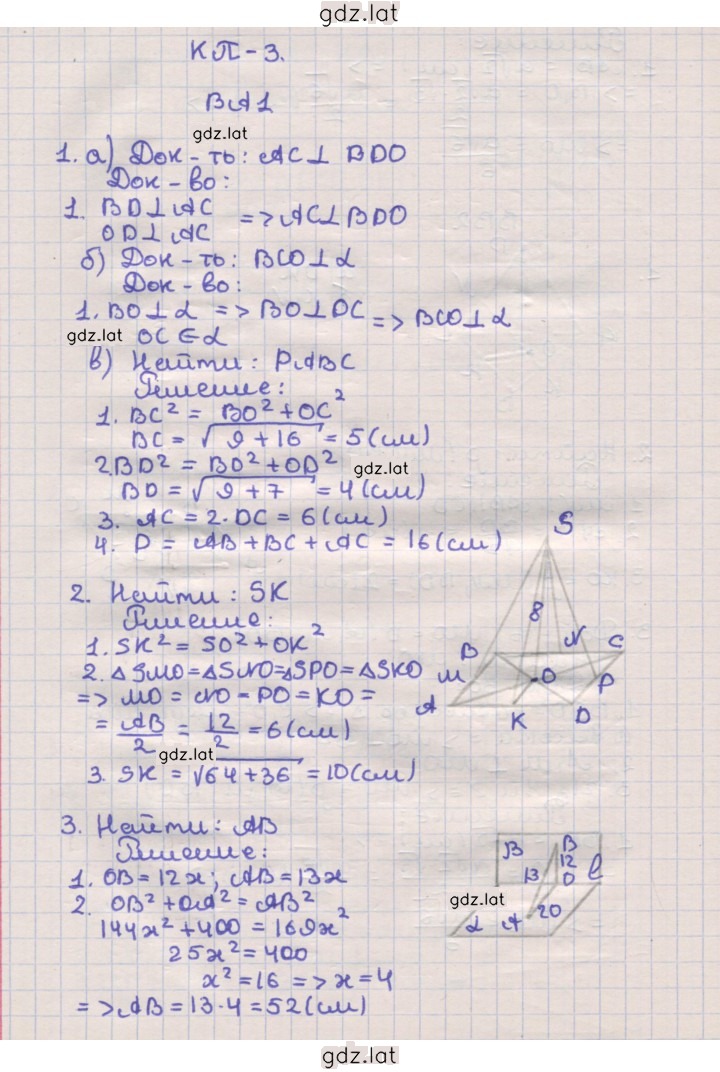 gdz.lat
КП-3.
ВА1
gdz.lat
1. а) Док-ть: AC⊥ BDO
Док-во:
1. BD⊥AC
OD⊥AC => AC⊥BDO
б) Док-ть: BCO⊥α
Док-во:
1. BO⊥α => BO⊥DC => BCO⊥α
gdz.lat OC∈α
в) Найти: PABC
Решение:
1. BC² = BO²+OC²
BC = √9+16 = 5(см)
2. BD² = BO²+OD² gdz.lat
BD = √9+7 = 4(см)
3. AC = 2·DC = 6(см)
4. P = AB+BC+AC = 16(см)
S
8
B N C
M O P
A K D
2. Найти: SK
Решение:
1. SK² = SO²+OK²
2. △SMO=△SNO=△SPO=△SKO
=> MO = NO = PO = KO =
= AB/2 = 12/2 = 6(см)
gdz.lat
3. SK = √64+36 = 10(см)
3. Найти: AB
Решение:
1. OB=12x; AB=13x
2. OB²+OA²=AB²
144x²+400=169x²
25x²=400
x²=16 => x=4
=> AB=13·4=52(см)
B B
12
13 O l
gdz.lat
α A 20
gdz.lat